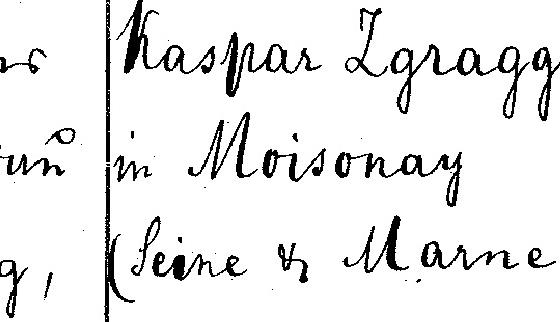 Kaspar Zgragg
in Moisonay
(Seine & Marne